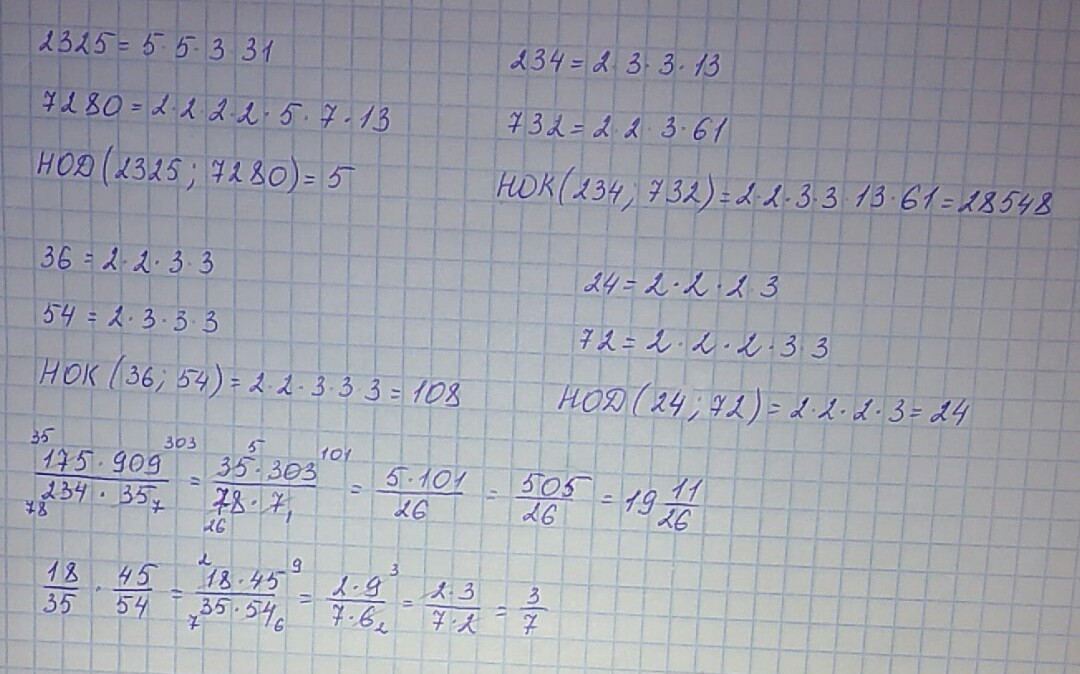 2325 = 5·5·3 31
7280 = 2·2·2·2·5·7·13
НОД(2325; 7280) = 5
234 = 2·3·3·13
732 = 2·2·3·61
НОК(234; 732) = 2·2·3·3·13·61 = 28548
36 = 2·2·3·3
54 = 2·3·3·3
НОК (36; 54) = 2·2·3·3 3 = 108
24 = 2·2·2 3
72 = 2·2·2·3·3
НОД(24; 72) = 2·2·2·3 = 24
35 303 5 101
175·909 / 234·35 = 35·303 / 78·7 = 5·101 / 26 = 505 / 26 = 19 11/26
78 7 26 1
2 9 3
18/35 · 45/54 = 18·45 / 35·54 = 2·9 / 7·6 = 2·3 / 7·2 = 3/7
7 6 2